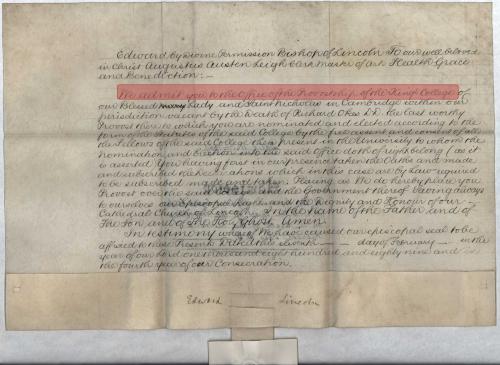 Edward by Divine Permission Bishop of Lincoln To our well beloved
in Christ Augustus Austen Leigh Clerk Master of Arts Health Grace
and Benediction:—
We admit you to the Office of the Provostship of the King's College of
our Blessed Lady and Saint Nicholas in Cambridge within our
jurisdiction vacant by the Death of Richard Okes D.D. the last worthy
Provost there to which you are nominated and elected according to the
form of the Statutes of the said College by the free assent and consent of all
the fellows of the said College then present in the University to whom the
nomination and Election to the said Office doth of right belong (as it
is asserted) You having first in our presence taken the Oaths and made
and subscribed the declarations which in this case are by Law required
to be subscribed made and taken. Placing as We do hereby place you
Provost over the said and the Government thereof Saving always
to ourselves our Episcopal Rights and the Dignity and Honour of our
Cathedral Church of Lincoln. In the Name of the Father and of
the Son and of the Holy Ghost Amen.
In testimony whereof We have caused our episcopal seal to be
affixed to these Presents Dated this eleventh day of February in the
year of our Lord one thousand eight hundred and eighty nine and in
the fourth year of our Consecration.
Edward Lincoln